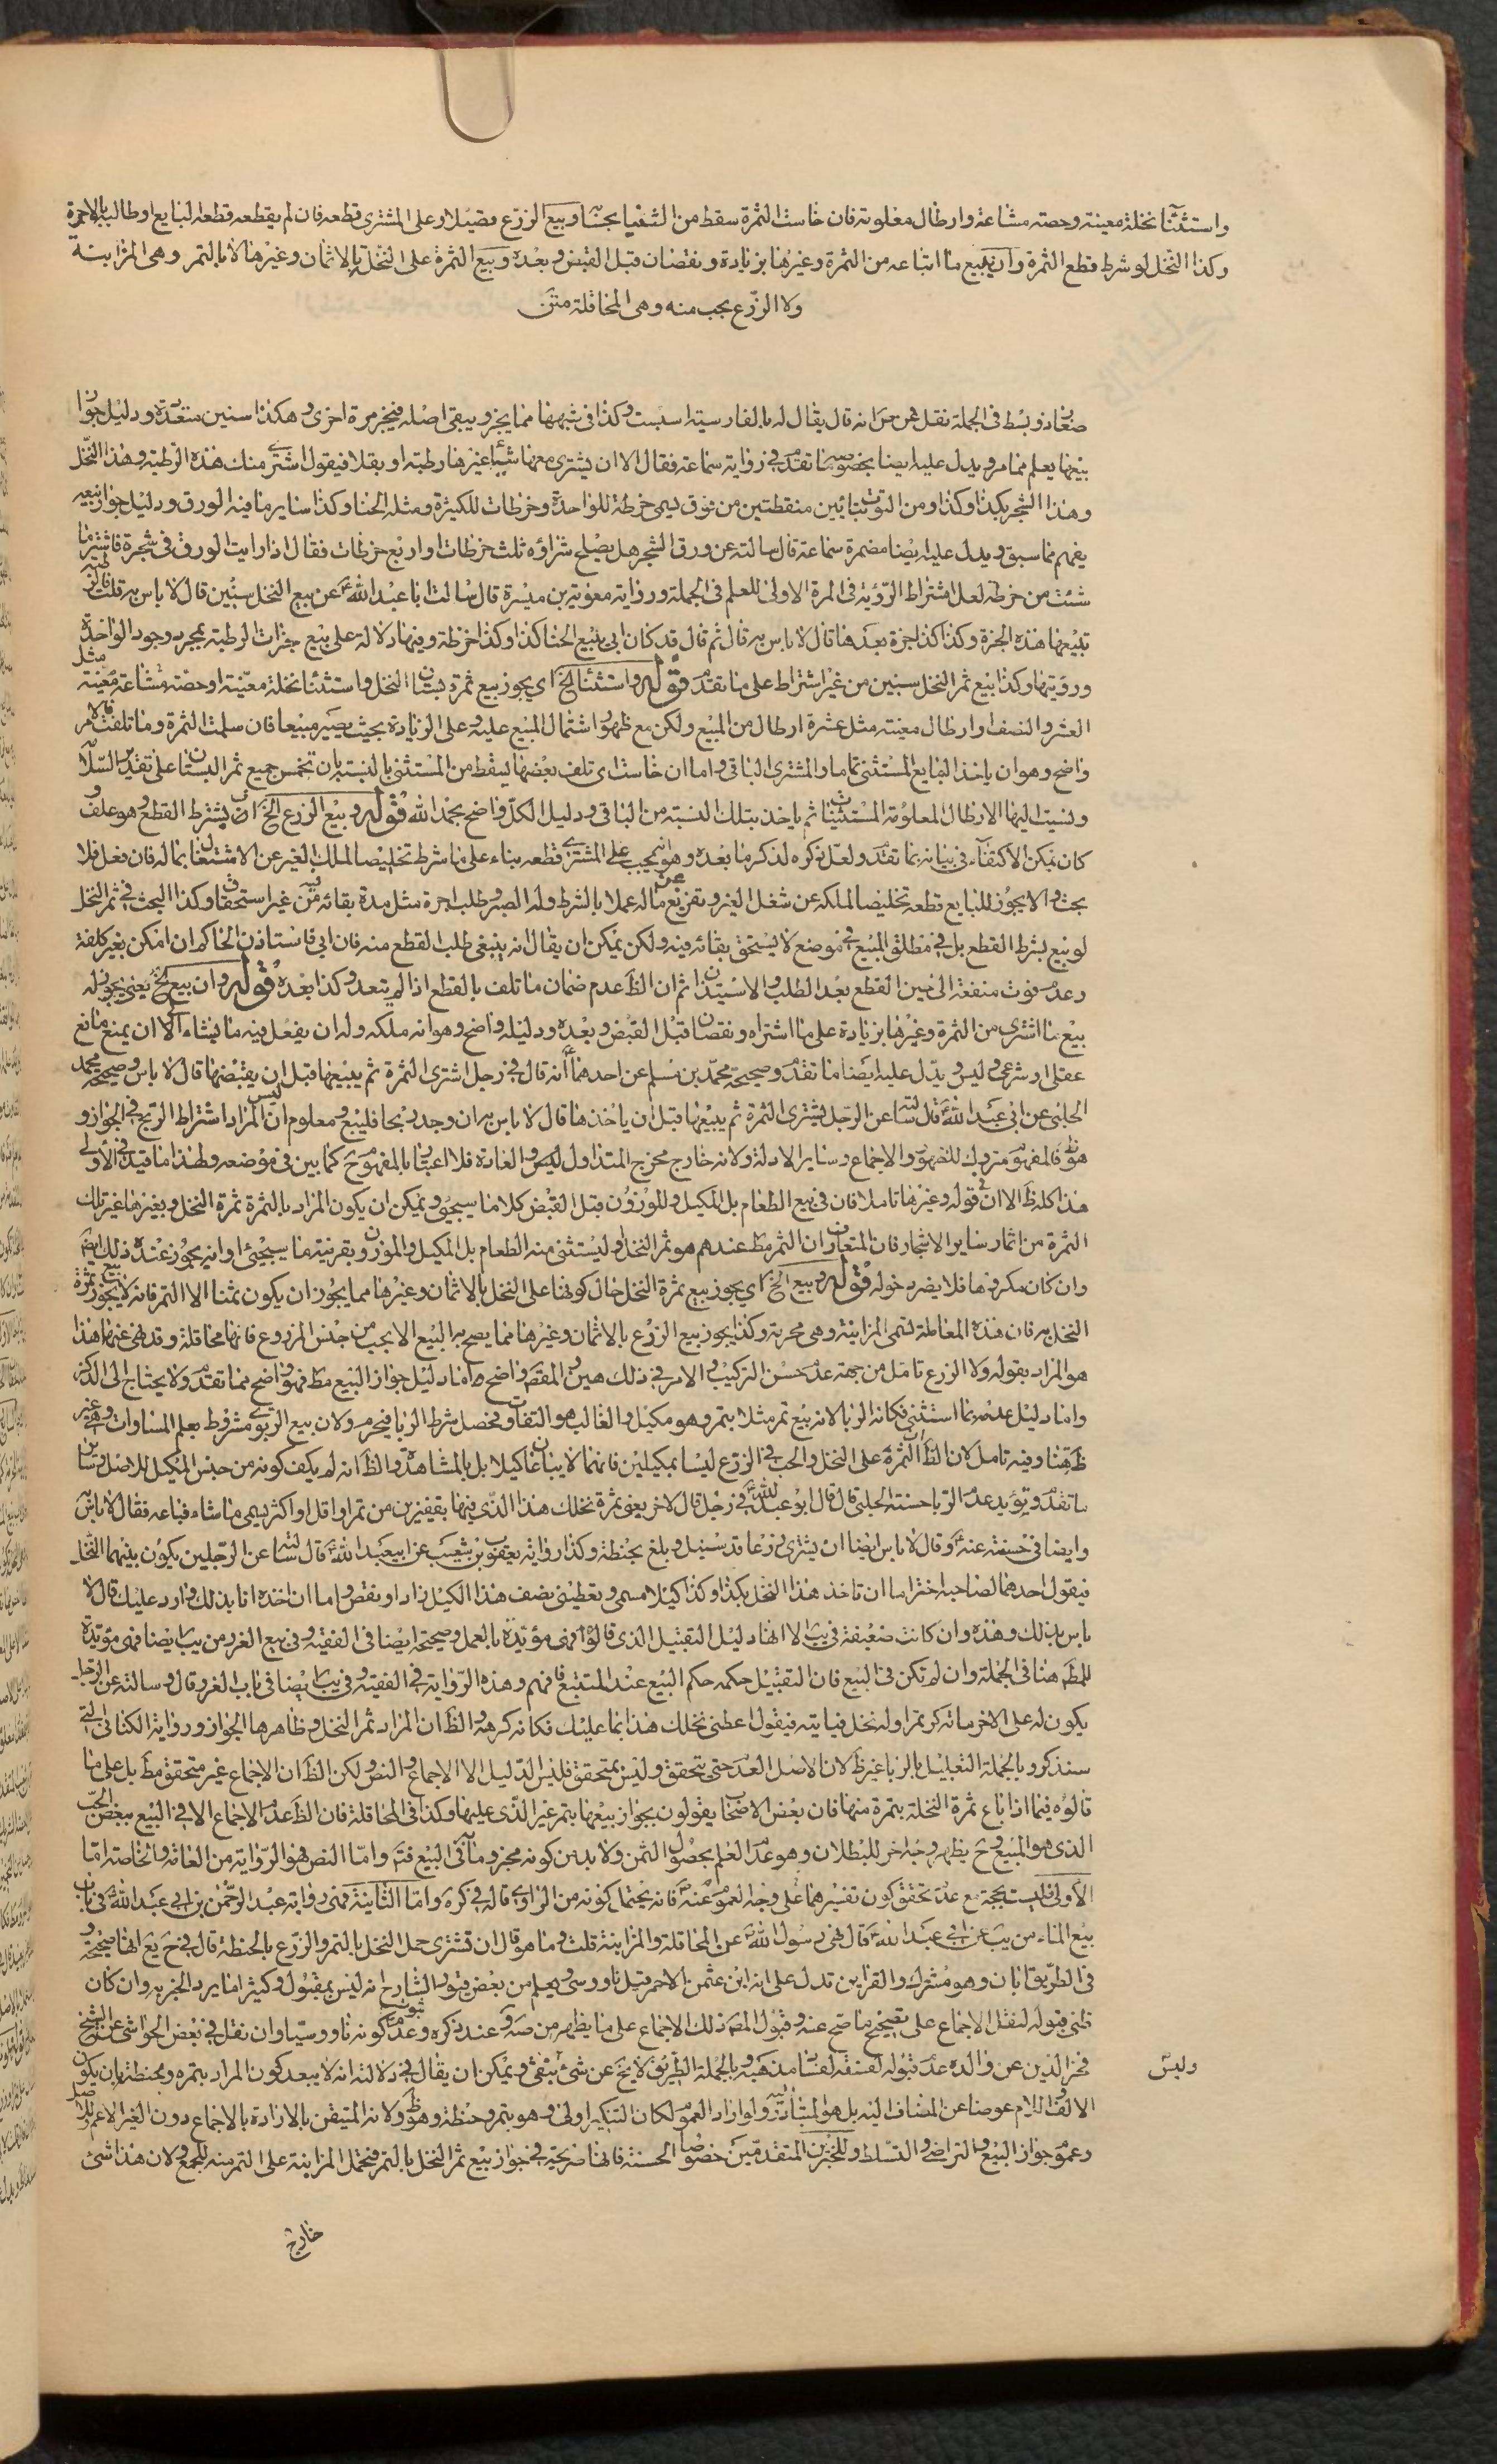 واستثنآ نخلة معينة وحصته مشاعة وارطال معلومة فان خاست الثمرة سقط من الثنيا بحسابه وبيع الزرع قصيلا وعلى المشتري قطعه فان لم يقطعه قطعه البايع او طالبه بالاجرة
وكذا النخل لو شرط قطع الثمرة وان يبيع ما ابتاعه من الثمرة وغيرها بزيادة ونقصان قبل القبض وبعده وبيع الثمرة على النخل بالاثمان وغيرها لا بالتمر وهي المزابنة
ولا الزرع بحب منه وهي المحاقلة متن
صغار ذو بسط في الجملة نقل عن انه قال يقال له بالفارسية اسبست وكذا في شبهها مما يجز ويبقى اصله فيجز مرة اخرى وهكذا سنين متعددة ودليل جواز
بيعها يعلم مما مر ويدل عليه ايضا بخصوصه ما تقدم في رواية سماعة فقال لا الا ان يشتري معها شيئا غيرها رطبة او بقلا فيقول اشتري منك هذه الرطبة وهذا النخل
وهذا الشجر بكذا وكذا ومن التوت بتائين منقطتين من فوق يسمى خرطة للواحدة وخرطات للكثيرة ومثله الحنا وكذا ساير ما فيه الورق ودليل جواز بيعه
يفهم مما سبق ويدل عليه ايضا مضمرة سماعة قال سالته عن ورق الشجر هل يصلح شراؤه ثلث خرطات او اربع خرطات فقال اذا رايت الورق في شجرة فاشتر ما
شئت من خرطة لعل اشتراط الرؤية في المرة الاولى للعلم في الجملة ورواية معوية بن ميسرة قال سالت ابا عبد الله ع عن بيع النخل سنتين قال لا باس به قلت فالرطبة
تبيعها هذه الجزة وكذا وكذا جزة بعدها قال لا باس به قال ثم قال قد كان ابي يبيع الحنا كذا وكذا خرطة وفيها دلالة على بيع جزات الرطبة بمجرد وجود الواحدة
ورؤيتها وكذا بيع ثمر النخل سنين من غير اشتراط على ما تقدم قوله واستثنآ الخ اي يجوز بيع ثمرة بستان النخل واستثنآ نخلة معينة او حصة مشاعة معينة مثل
العشر والنصف او ارطال معينة مثل عشرة ارطال من المبيع ولكن مع ظهور اشتمال المبيع عليه وعلى الزيادة بحيث يصير مبيعا فان سلمت الثمرة وما تلفت فالامر
واضح وهو ان ياخذ البايع المستثنى تماما والمشتري الباقي واما ان خاست اي تلف بعضها يسقط من المستثنى بالنسبة بان تخمن جميع ثمر البستان على تقدير السلامة
ونسبت اليها الارطال المعلومة المستثنيات ثم ياخذ بتلك النسبة من الباقي ودليل الكل واضح بحمد الله قوله وبيع الزرع الخ اي بشرط القطع وهو علف
كان يمكن الاكتفاء في بيانه بما تقدم ولعل ذكره لذكر ما بعده وهو انه يجب على المشتري قطعه بناء على ما شرط تخليصا لملك الغير عن الاشتغال بماله فان فعل فلا
بحث والا يجوز للبايع قطعه تخليصا لملكه عن شغل الغير وتفريغ ماله عملا بالشرط وله الصبر وطلب اجرة مثل مدة بقائه فيه من غير استحقاق وكذا البحث في ثمر النخل
لو بيع بشرط القطع بل في مطلق المبيع في موضع لا يستحق بقائه فيه ولكن يمكن ان يقال انه ينبغي طلب القطع منه فان ابى فاستاذن الحاكم ان امكن بغير كلفة
وعدم فوت منفعة الى حين القطع بعد الطلب والاستيذان ثم ان الظ عدم ضمان ما تلف بالقطع اذا لم يتعد وكذا بعده قوله وان بيع الخ يعني يجوز له
بيع ما اشترى من الثمرة وغيرها بزيادة على ما اشتراه ونقصان قبل القبض وبعده ودليله واضح وهو انه ملكه وله ان يفعل فيه ما يشاء الا ان يمنع مانع
عقلي او شرعي وليس ويدل عليه ايضا ما تقدم وصحيحة محمد بن مسلم عن احدهما انه قال في رجل اشترى الثمرة ثم يبيعها قبل ان يقبضها قال لا باس وصحيحة محمد
الحلبي عن ابي عبد الله قال سالته عن الرجل يشتري الثمرة ثم يبيعها قبل ان ياخذها قال لا باس به ان وجد ربحا فليبع ومعلوم ان ليس المراد اشتراط الربح في الجواز و
هو ظ فالمفهوم متروك للظهور والاجماع وساير الادلة ولانه خارج مخرج المتداول والعادة فلا اعتبار بالمفهوم ح كما بين في موضعه ولهذا ما قيد في الاولى
هذا كله ظ الا ان في قوله وغيرها تاملا فان في بيع الطعام بل المكيل والموزون قبل القبض كلاما سيجيء ويمكن ان يكون المراد بالثمرة ثمرة النخل وبغيرها غير تلك
الثمرة من اثمار ساير الاشجار فان المتعارف ان الثمر مط عندهم هو ثمر النخل او ليستثنى منه الطعام بل المكيل والموزون بقرينة ما سيجيئ او انه يجوز عنده ذلك ايضا
وان كان مكروها فلا يضر دخوله قوله وبيع الخ اي يجوز بيع ثمرة النخل حال كونها على النخل بالاثمان وغيرها مما يجوز ان يكون ثمنا الا التمر فانه لا يجوز بيع ثمرة
النخل به فان هذه المعاملة تسمى المزابنة وهي محرمة وكذا يجوز بيع الزرع بالاثمان وغيرها مما يصح به البيع الا بحب من جنس المزروع فانها محاقلة وقد نهى عنها هذا
هو المراد بقوله ولا الزرع تامل من جهة عدم حسن التركيب والامر في ذلك هين والمقصود واضح واما دليل جواز البيع مط فهو واضح مما تقدم ولا يحتاج الى الذكر
واما دليل عدمه بما استثنى فكانه الربا لانه بيع تمر مثلا بتمر وهو مكيل والغالب هو التفاوت فحصل شرط الربا فيحرم ولان بيع الربوي مشروط بعلم المساوات وهي غير
ظ هنا وفيه تامل لان الظ ان الثمرة على النخل والحب في الزرع ليسا بمكيلين فانهما لا يباعان كيلا بل بالمشاهدة والظ انه لم يكف كونه من جنس المكيل للاصل وساير
ما تقدم ويؤيد عدم الربا حسنة الحلبي قال قال ابو عبد الله في رجل قال لاخر بعني ثمرة نخلك هذا الذي فيها بقفيزين من تمر او اقل او اكثر يسمى ما شاء فباعه فقال لا باس
وايضا في حسنة عنه وقال لا باس ايضا ان يشتري زرعا قد سنبل وبلغ بحنطة وكذا رواية يعقوب بن شعيب عن ابي عبد الله قال سالته عن الرجلين يكون بينهما النخل
فيقول احدهما لصاحبه اختر اما ان تاخذ هذا النخل بكذا وكذا كيلا مسمى وتعطيني نصف هذا الكيل زاد او نقص واما ان اخذه انا بذلك وارد عليك قال لا
باس بذلك وهذه وان كانت ضعيفة في يب الا انها دليل التقبيل الذي قالوا فهي مؤيدة بالعمل وصحيحة ايضا في الفقيه وفي بيع الغرر من يب ايضا فهي مؤيدة
للمط هنا في الجملة وان لم تكن في البيع فان التقبيل حكمه حكم البيع عند المتتبع فافهم وهذه الرواية في الفقيه وفي يب ايضا في باب الغرر قال وسالته عن الرجل
يكون له على الاخر ماته كر تمرا وله نخل فياتيه فيقول اعطني نخلك هذا بما عليك فكانه كرهه والظ ان المراد ثمر النخل وظاهرها الجواز ورواية الكناني التي
سنذكر وبالجملة التعليل بالربا غير ظ لان الاصل العدم حتى يتحقق وليس بمتحقق فليس الدليل الا الاجماع والنص ولكن الظ ان الاجماع غير متحقق مط بل على ما
قالوه فيما اذا باع ثمرة النخلة بتمرة منها فان بعض الاصحاب يقولون بجواز بيعها بتمر غير الذي عليها وكذا في المحاقلة فان الظ عدم الاجماع الا في البيع ببعض الحب
الذي هو المبيع وح يظهر وجه اخر للبطلان وهو عدم العلم بحصول الثمن ولا بد من كونه مجزوما به في البيع فتم واما النص فهو الرواية من العامة والخاصة اما
الاولى فليست بحجة مع عدم تحقق كون تفسيرهما على وجه العموم عنه فانه يحتمل كونه من الراوي قاله في كره واما الثانية فهي رواية عبد الرحمن بن ابي عبد الله في باب
بيع الماء من يب عن ابي عبد الله قال نهى رسول الله عن المحاقلة والمزابنة قلت وما هو قال ان تشتري حمل النخل بالتمر والزرع بالحنطة قال في ح يع انها صحيحة و
في الطريق ابان وهو مشترك والقراين تدل على انه ابن عثمن الاحمر قيل ناووسي ويعلم من بعض قيود الشارح انه ليس بمقبول وكثيرا ما يرد الخبر به وان كان
ظني قبوله لنقل الاجماع على تصحيح ما صح عنه وقبول المص ذلك الاجماع على ما يظهر من صه وعند ذكره وعدم ثبوت كونه ناووسيا وان نقل في بعض الحواشي عن الشيخ
فخر الدين عن والده عدم قبوله لفسقه لفساد مذهبه وبالجملة الطريق لا يخ عن شئ فبقي ويمكن ان يقال في دلالته انه لا يبعد كون المراد بتمره وبحنطته بان يكون
وليس
الالف واللام عوضا عن المضاف اليه بل هو المتبادر ولو اراد العموم لكان التنكير اولى وهو بتمر وحنطة وهو ظ ولانه المتيقن بالارادة بالاجماع دون الغير الاعم للاصل
وعموم جواز البيع والتراضي والتسلط وللخبرين المتقدمين خصوصا الحسنة فانها صريحة في جواز بيع ثمر النخل بالتمر فتحمل المزابنة على التمر منه للجمع ولان هذا شئ
خارج